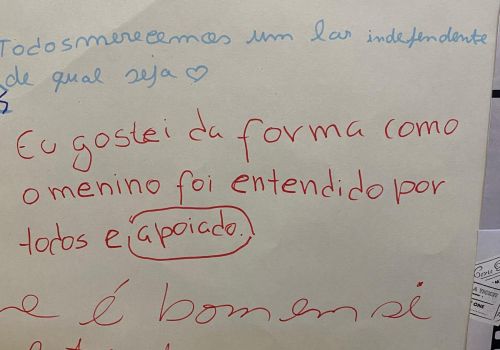 Todos merecemos um lar independente
de qual seja ♡
Eu gostei da forma como
o menino foi entendido por
todos e apoiado.
e é bom em si